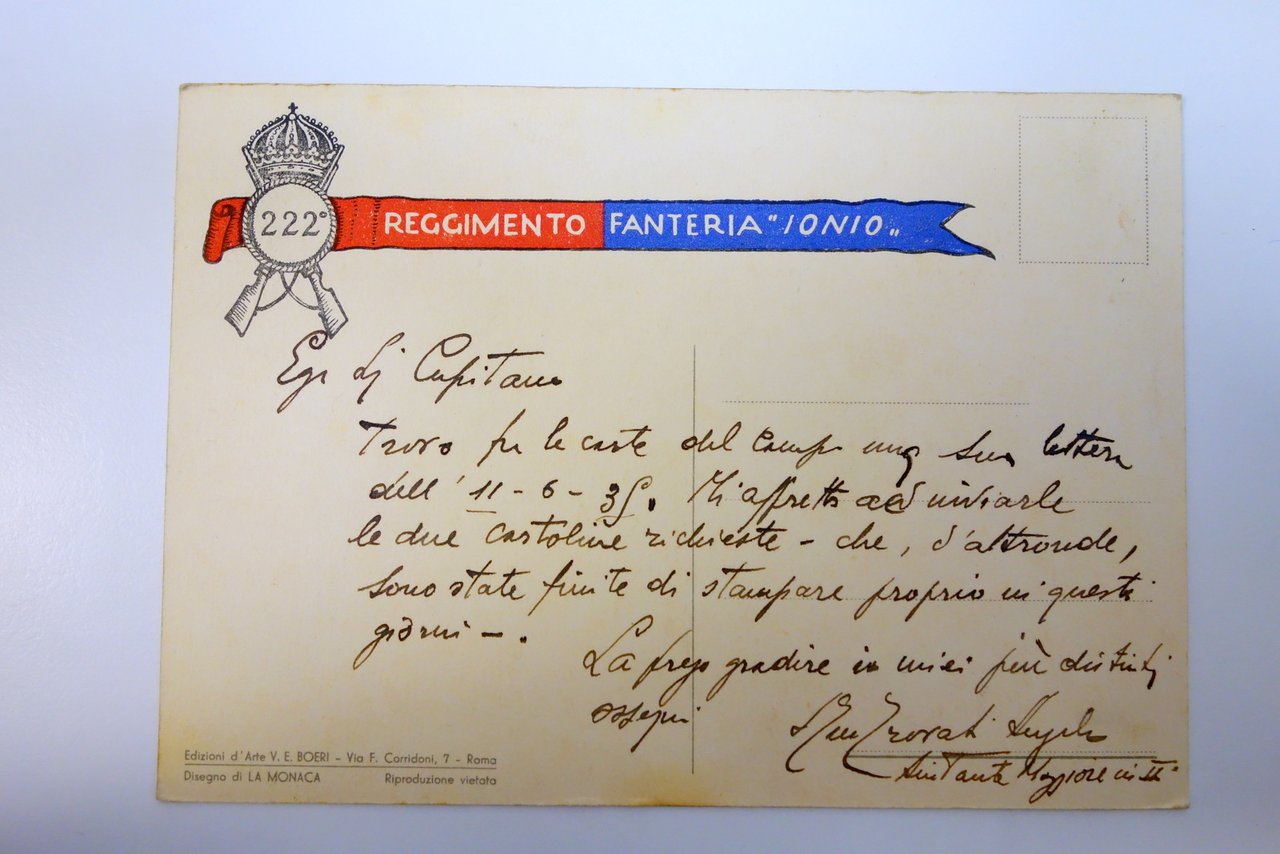 222°
REGGIMENTO FANTERIA "IONIO„
Egr Sig Capitano
Trovo fra le carte del campo una sua lettera
dell' 11 - 6 - 35. Mi affretto ad inviarle
le due cartoline richieste - che, d'altronde,
sono state finite di stampare proprio in questi
giorni -.
La prego gradire i miei più distinti
ossequi
Trovati Angelo
Aiutante Maggiore in
Edizioni d'Arte V. E. BOERI - Via F. Corridoni, 7 - Roma
Disegno di LA MONACA Riproduzione vietata